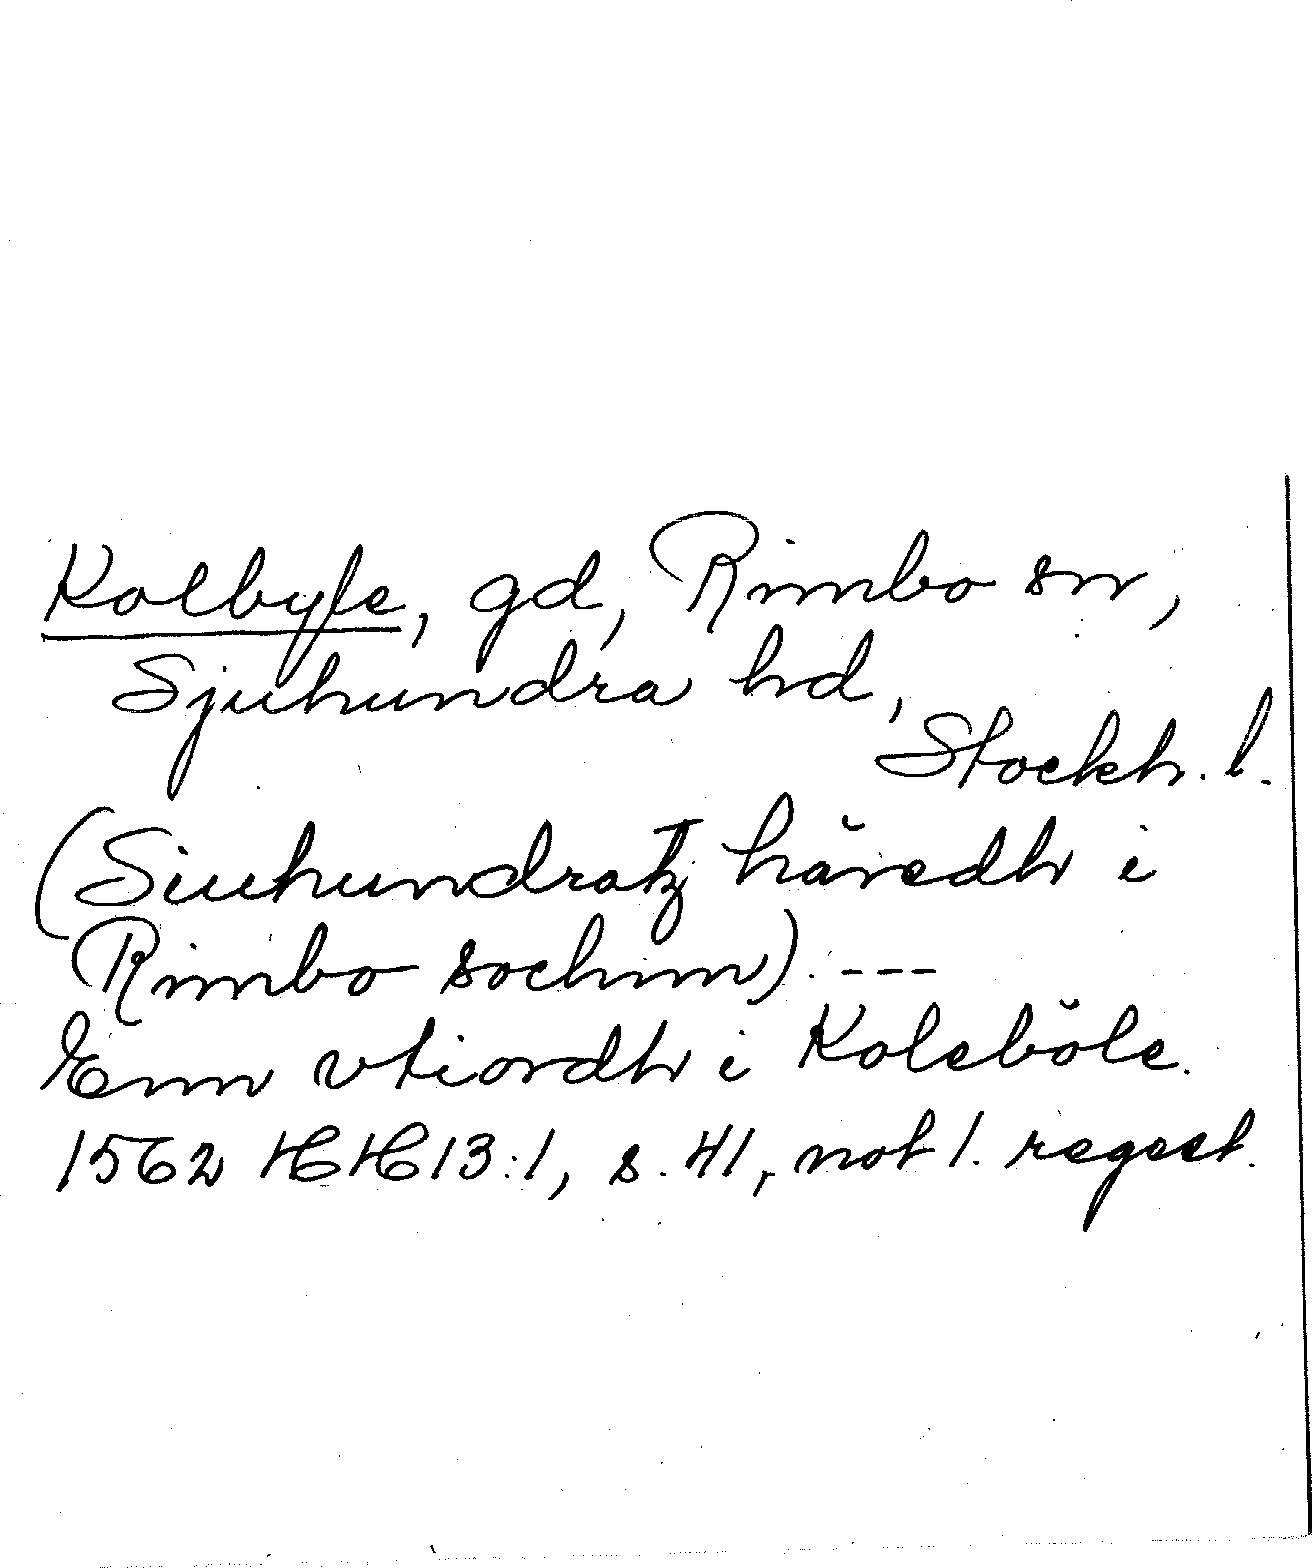 Kolbyle, gd, Rimbo sn,
Sjuhundra hd,
Stockh. l.
(Siuhundratz häredh i
Rimbo sochnn). ---
Enn vtiordh i Koleböle.
1562 HH 13:1, s. 41, not 1. regest.